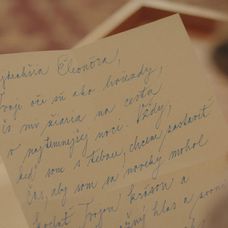 Eleonóra,
oči sú ako hviezdy,
mi žiaria na cestu
v najtemnejšej noci. Vždy,
keď som s tebou, chcem zastaviť
čas, aby som sa naveky mohol
Tvojou krásou a
hlas a